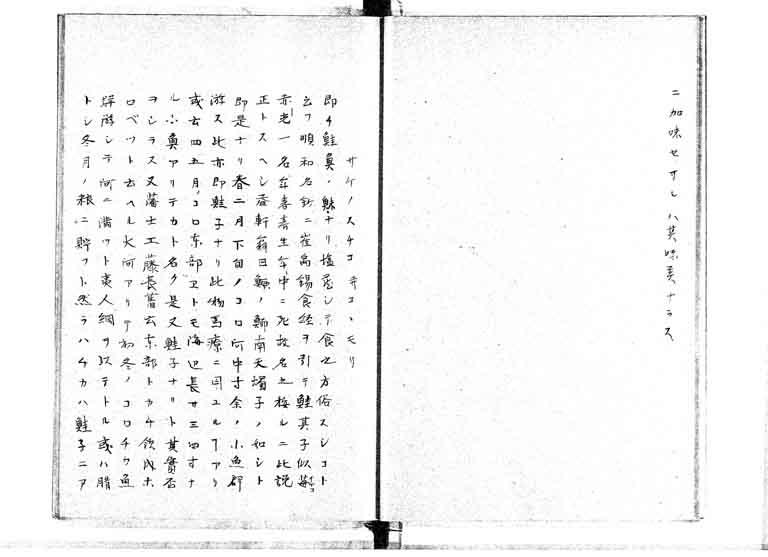 ニ加味セサレハ其味美ナラス
サケノスチコ 并コヽモリ
即チ鮭魚ノ鰊ナリ塩蔵シテ食之方俗スシコト
云フ順和名鈔ニ崔禹錫食経ヲ引テ鮭其子似苺
赤光一名年魚春生年中ニ死故名之按ルニ此説
正トスヘシ益軒翁曰鰊ノ卵南天燭子ノ如シト
即是ナリ春二月下旬ノコロ河中寸余ノ小魚群
游ス此亦即鮭子ナリ此物馬療ニ用ユルヿアリ
或云四五月ノコロ東部ヱトモ海辺長サ三四寸ナ
ル小魚アリテカト名ク是又鮭子ナリト其實否
ヲシラス又藩士工藤長舊云東部トカチ飲内ホ
ロベツト云ヘル大河アリテ初冬ノコロチカ魚
群游シテ河ニ満ツト夷人網ヲ以テトル或ハ腊
トシ冬月ノ粮ニ貯フト然ラハチカハ鮭子ニア